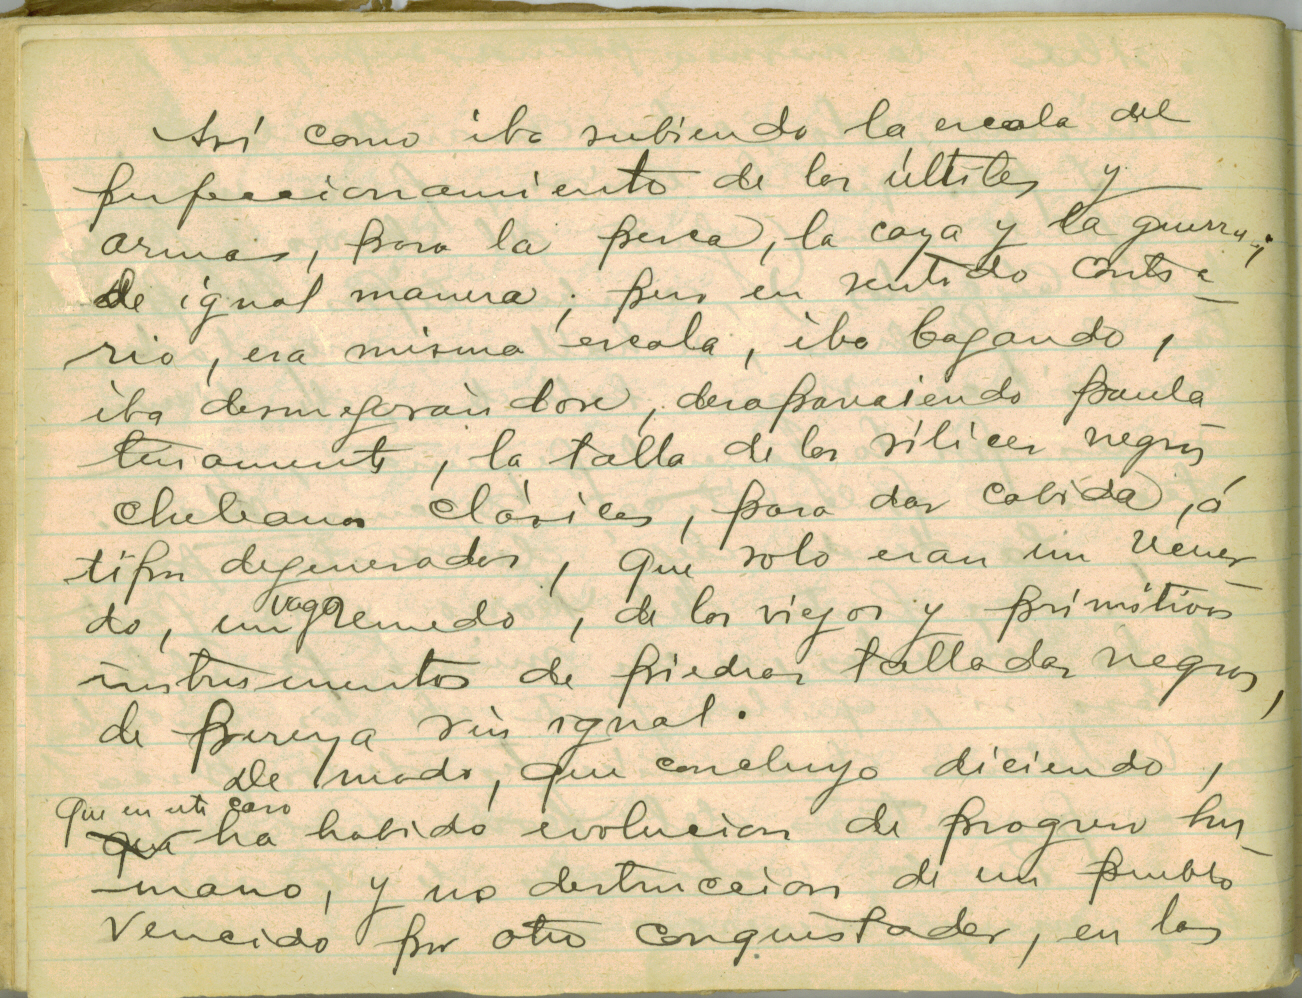 Así como iba subiendo la escala del
perfeccionamiento de los últiles y
armas, para la pesca, la caza y la guerra,;
de igual manera, pero en sentido contra-
rio, esa misma escala, iba bagando,
iba desmegorándose, desapareciendo paula
tinamente, la talla de los sílices negros
cheleanos clásicos, para dar cabida, á
tipos degenerados, que solo eran un
do, un vago remedo, de los viejos y primitivos
instrumentos de piedras talladas negros,
de pureza sin igual.
De modo, que concluyo diciendo,
que en este caso
que ha habido evolucion de progreso hu-
mano, y no destruccion de un pueblo
vencido por otro conquistador, en las